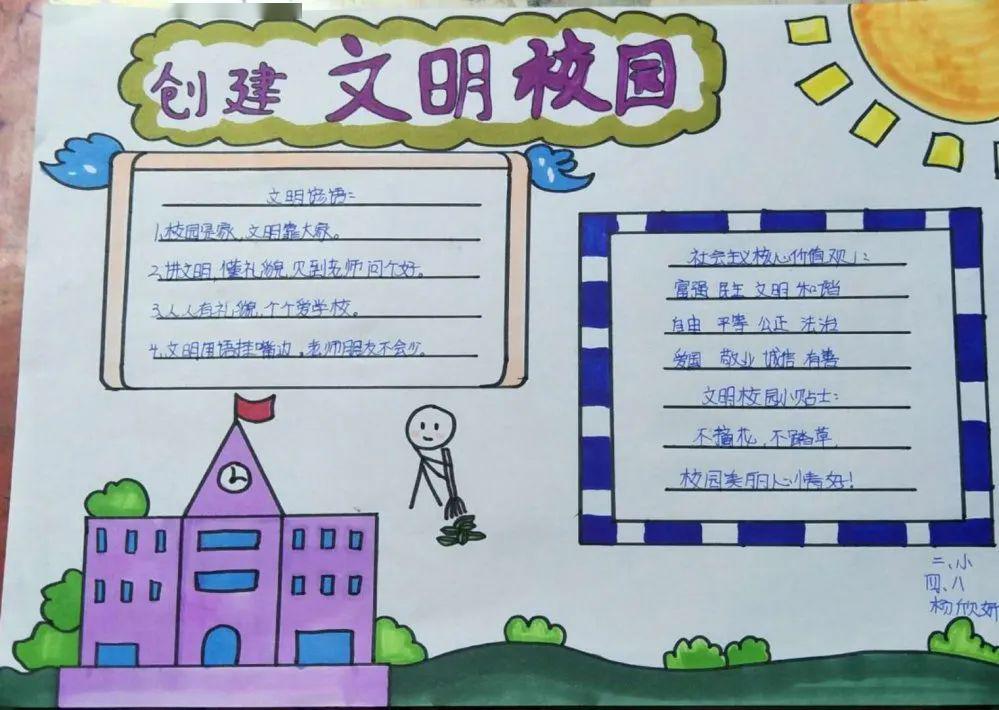 创建 文明校园
文明语:
1.校园是家,文明靠大家。
2.讲文明,懂礼貌,见到老师问个好。
3.人人有礼貌,个个爱学校。
4.文明用语挂嘴边,老师朋友不会少。
社会主义核心价值观:
富强 民主 文明 和谐
自由 平等 公正 法治
爱国 敬业 诚信 有善
文明校园小贴士:
不摘花,不踏草,
校园美丽心情好!
二、小
四、八
杨欣妍